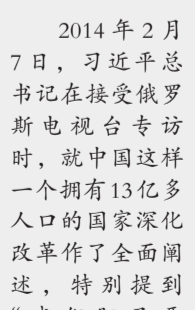 2014 年 2 月
7 日，习近平总
书记在接受俄罗
斯电视台专访
时，就中国这样
一个拥有13亿多
人口的国家深化
改革作了全面阐
述，特别提到